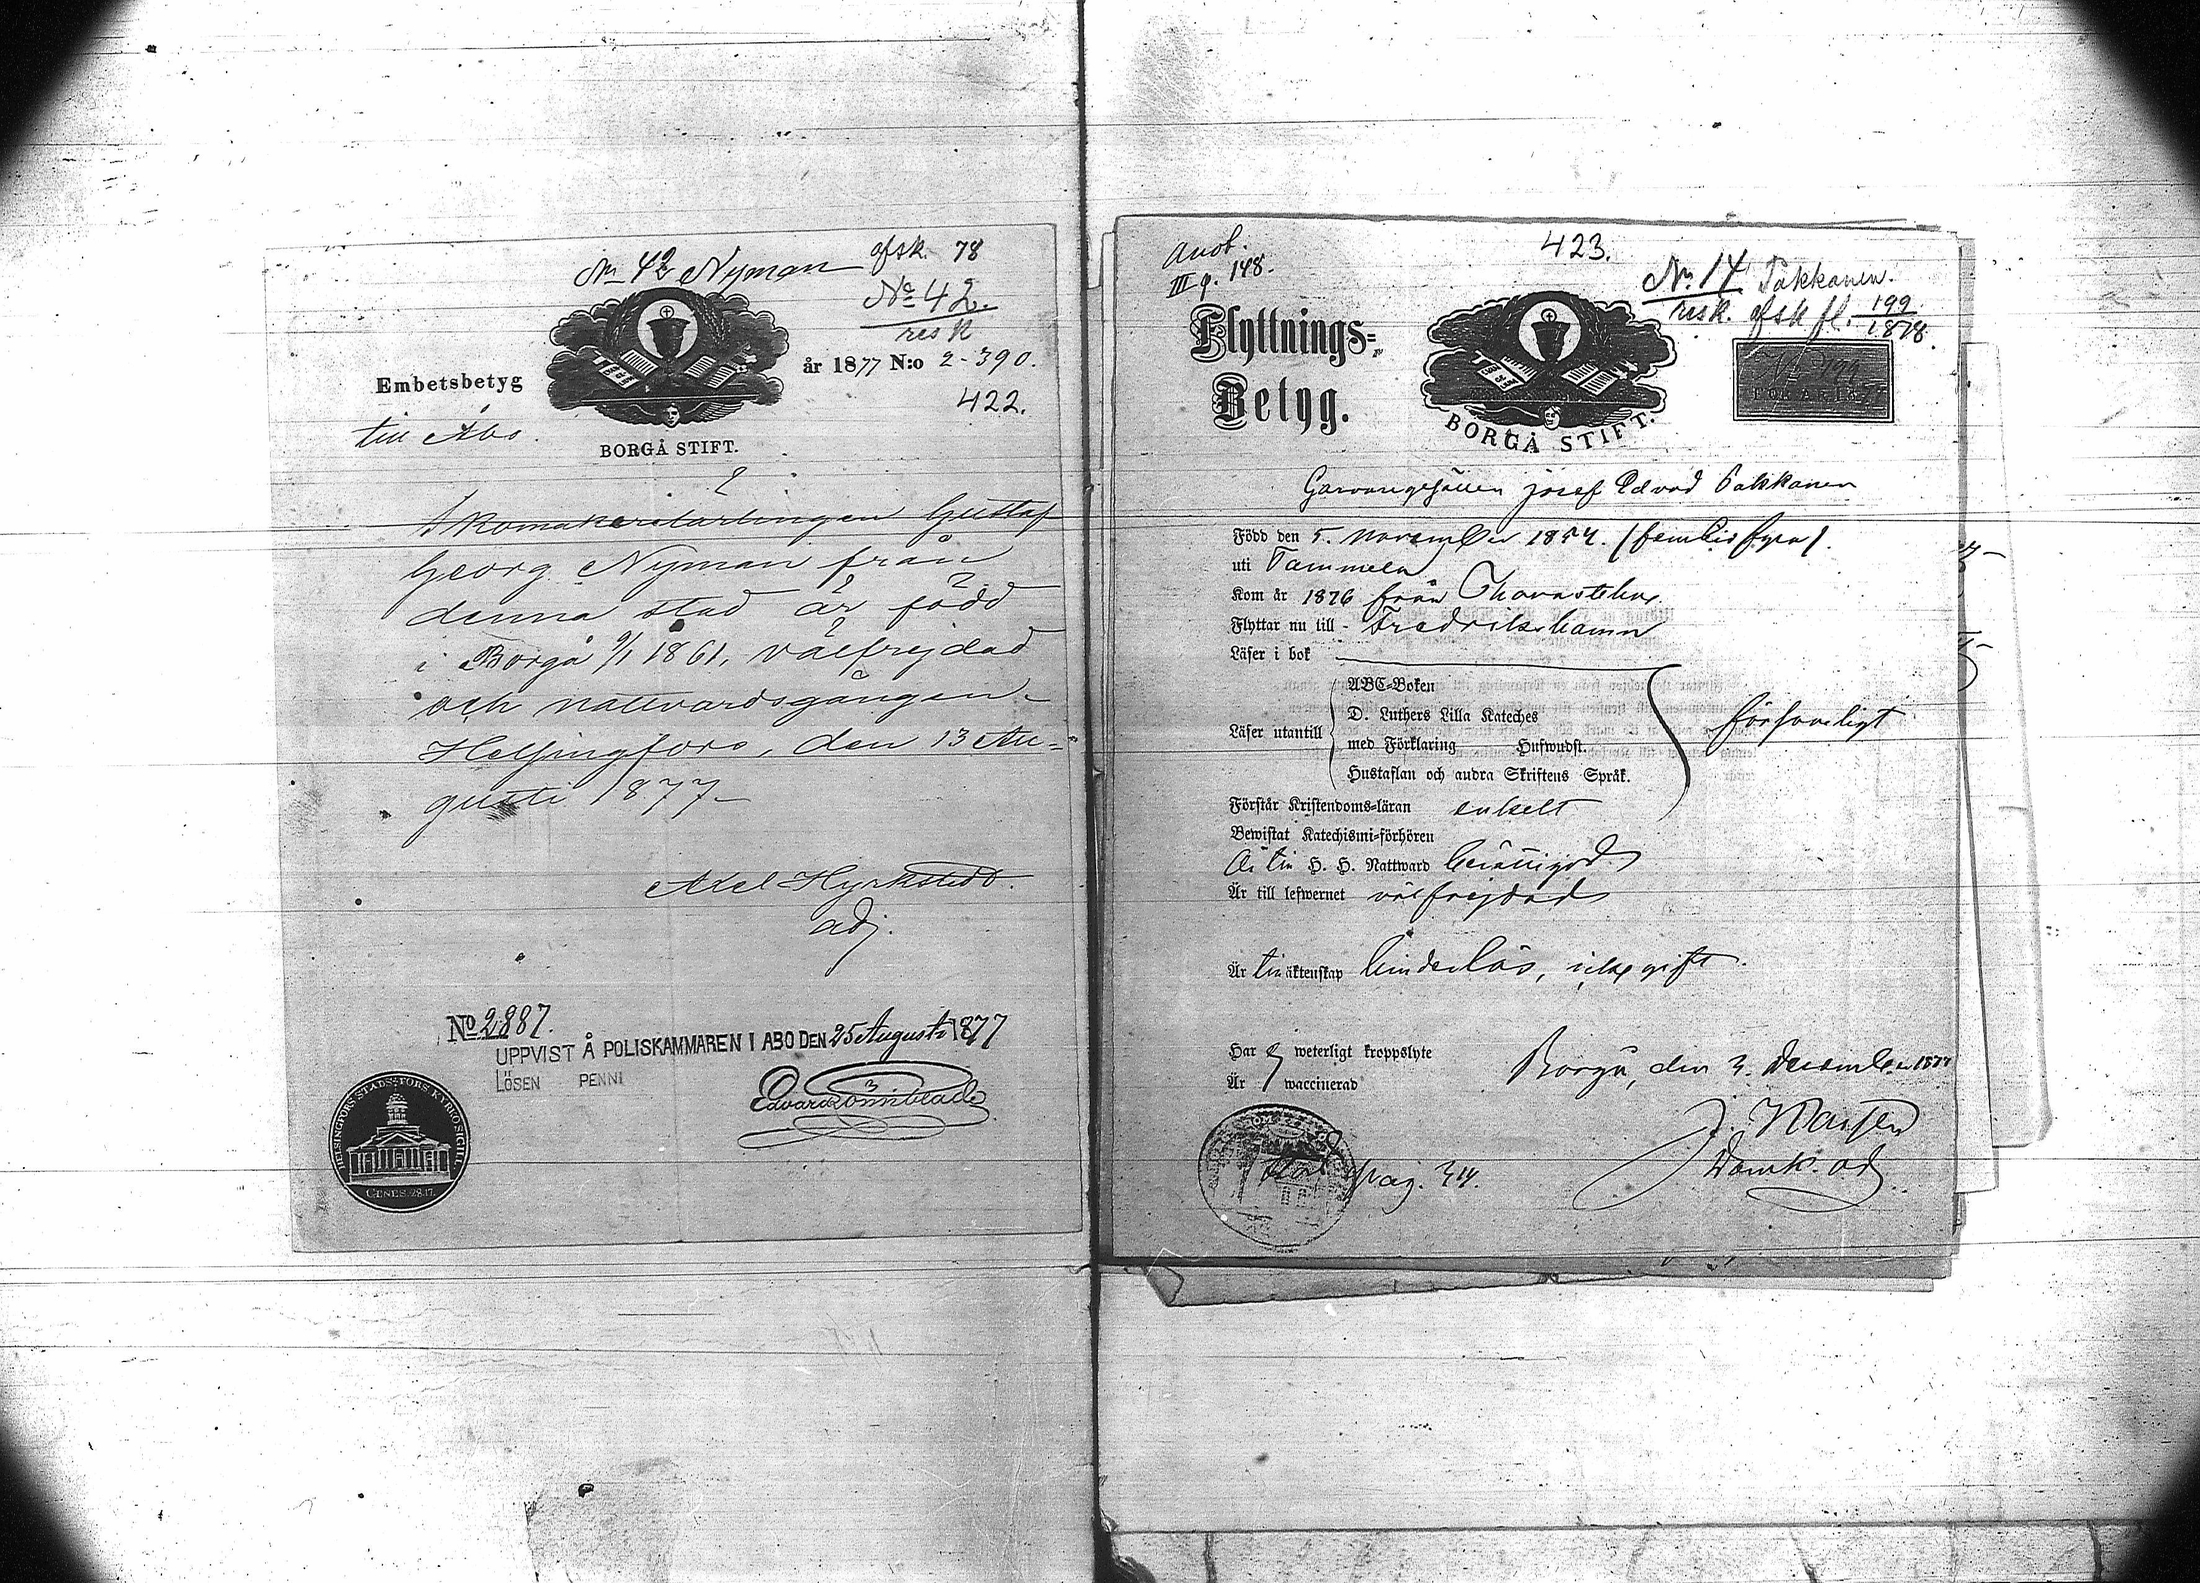 No 42 Nyman afsk. 78
No 42.
resk
Embetsbetyg
år 1877 N:o 2-390.
till Åbo.
422.
BORGÅ STIFT.
Skomakarelärlingen Gustaf
Georg Nyman från
denna stad är född
i Borgå 9/1 1861, välfrejdad
och nattvardsgången.
Helsingfors, den 13 Au-
gusti 1877
Axel Hyrkstedt.
adj.
No 2887.
UPPVIST Å POLISKAMMAREN I ABO DEN 25 Augusti 1877
LÖSEN PENNI
Edvard Lönnblad
HELSINGFORS STADSFÖRS. KYRKOSIGILL
GENES. 28.17.
423.
III q. 148.
No 14 Pakkanen.
resk. afsk fl. 199/1878.
Flyttnings-
Betyg.
No 199
FÖR ÅR 187
BORGÅ STIFT.
Garvaregesällen Josef Edvard Pakkanen
Född den 5. November 1854. (femtio fyra).
uti Tammela
Kom år 1876 från Thavastehus
Flyttar nu till Fredrikshamn
Läser i bok
ABC-Boken
D. Luthers Lilla Kateches
Läser utantill
med Förklaring Hufwudst.
Hustaflan och andra Skriftens Språk.
försvarligt
Förstår Kristendoms-läran enkelt
Bewistat Katechismi-förhören
Är till H. H. Nattward berättigad
Är till lefwernet välfrejdad
Är till äktenskap hinderlös, icke gift.
Har ej weterligt kroppslyte
Är waccinerad
Borgå, den 3. December 1877
pag. 314.
Domk. adj.